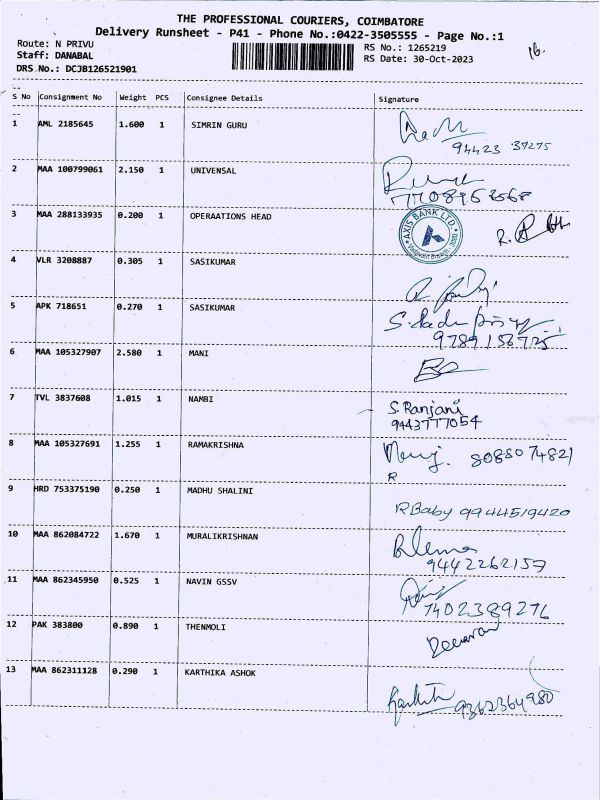 THE PROFESSIONAL COURIERS, COIMBATORE
Delivery Runsheet - P41 - Phone No.:0422-3505555 - Page No.:1
Route: N PRIVU RS No.: 1265219 16.
Staff: DANABAL RS Date: 30-Oct-2023
DRS No.: DCJB126521901
S No Consignment No Weight PCS Consignee Details Signature
1 AML 2185645 1.600 1 SIMRIN GURU
94423 37275
2 MAA 100799061 2.150 1 UNIVENSAL
7708953568
3 MAA 288133935 0.200 1 OPERAATIONS HEAD AXIS BANK LTD. R.
4 VLR 3208887 0.305 1 SASIKUMAR
5 APK 718651 0.270 1 SASIKUMAR
9789156725
6 MAA 105327907 2.580 1 MANI
7 TVL 3837608 1.015 1 NAMBI S.Ranjani
9443777054
8 MAA 105327691 1.255 1 RAMAKRISHNA 8088074821
R
9 HRD 753375190 0.250 1 MADHU SHALINI
RBaby 9944519420
10 MAA 862084722 1.670 1 MURALIKRISHNAN
9442262157
11 MAA 862345950 0.525 1 NAVIN GSSV
7402389276
12 PAK 383800 0.890 1 THENMOLI
13 MAA 862311128 0.290 1 KARTHIKA ASHOK
9362364980